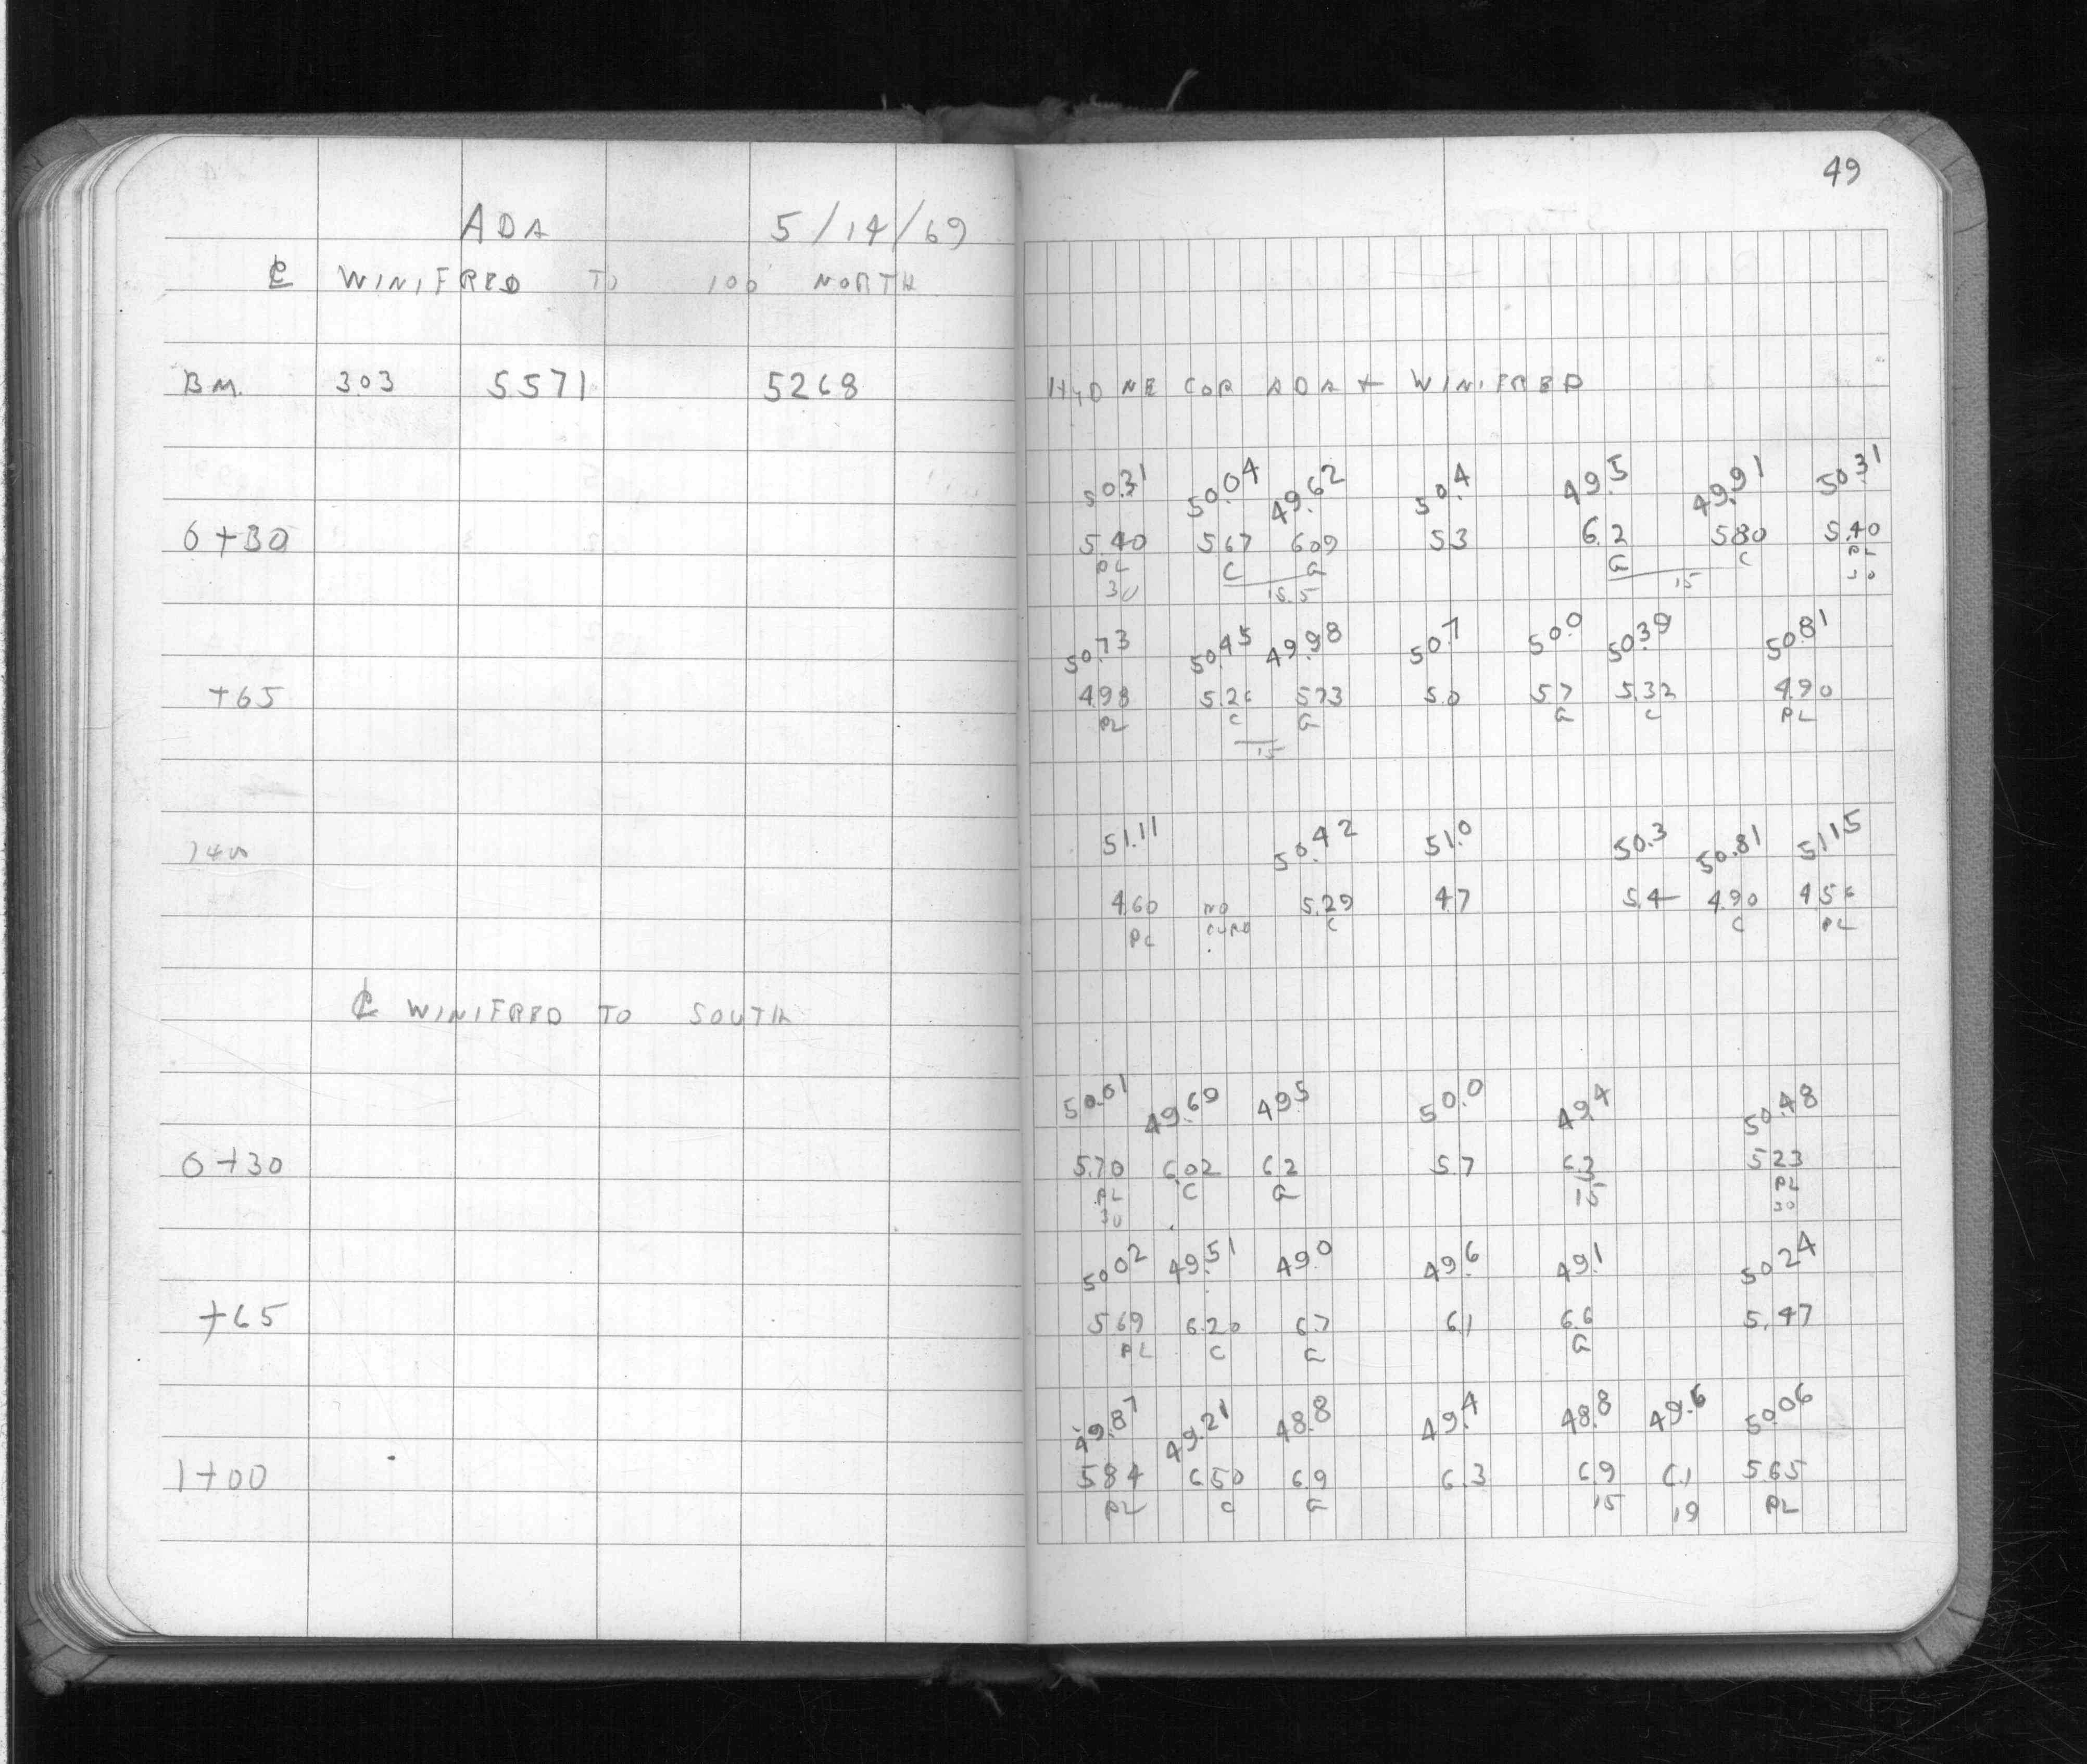 49
ADA 5/14/69
℄ WINIFRED TO 100' NORTH
B.M. 3.03 5571 5268 HYD NE COR ADA + WINIFRED
50.31 50.04 49.62 50.4 49.5 49.91 50.31
0+30 5.40 5.67 6.09 5.3 6.2 5.80 5.40
PL C G G C PL
30 15.5 15 30
50.73 50.45 49.98 50.7 50.0 50.39 50.81
+65 4.98 5.26 5.73 5.0 5.7 5.32 4.90
PL C G G C PL
15
51.11 50.42 51.0 50.3 50.81 51.15
1+00 4.60 NO 5.29 4.7 5.4 4.90 4.56
PL CURB C C PL
℄ WINIFRED TO SOUTH
50.01 49.69 49.5 50.0 49.4 50.48
0+30 5.70 6.02 6.2 5.7 6.3 5.23
PL C G 15 PL
30 30
50.02 49.51 49.0 49.6 49.1 50.24
+65 5.69 6.20 6.7 6.1 6.6 5.47
PL C G G
49.87 49.21 48.8 49.4 48.8 49.6 50.06
1+00 5.84 6.50 6.9 6.3 6.9 6.1 5.65
PL C G 15 19 PL